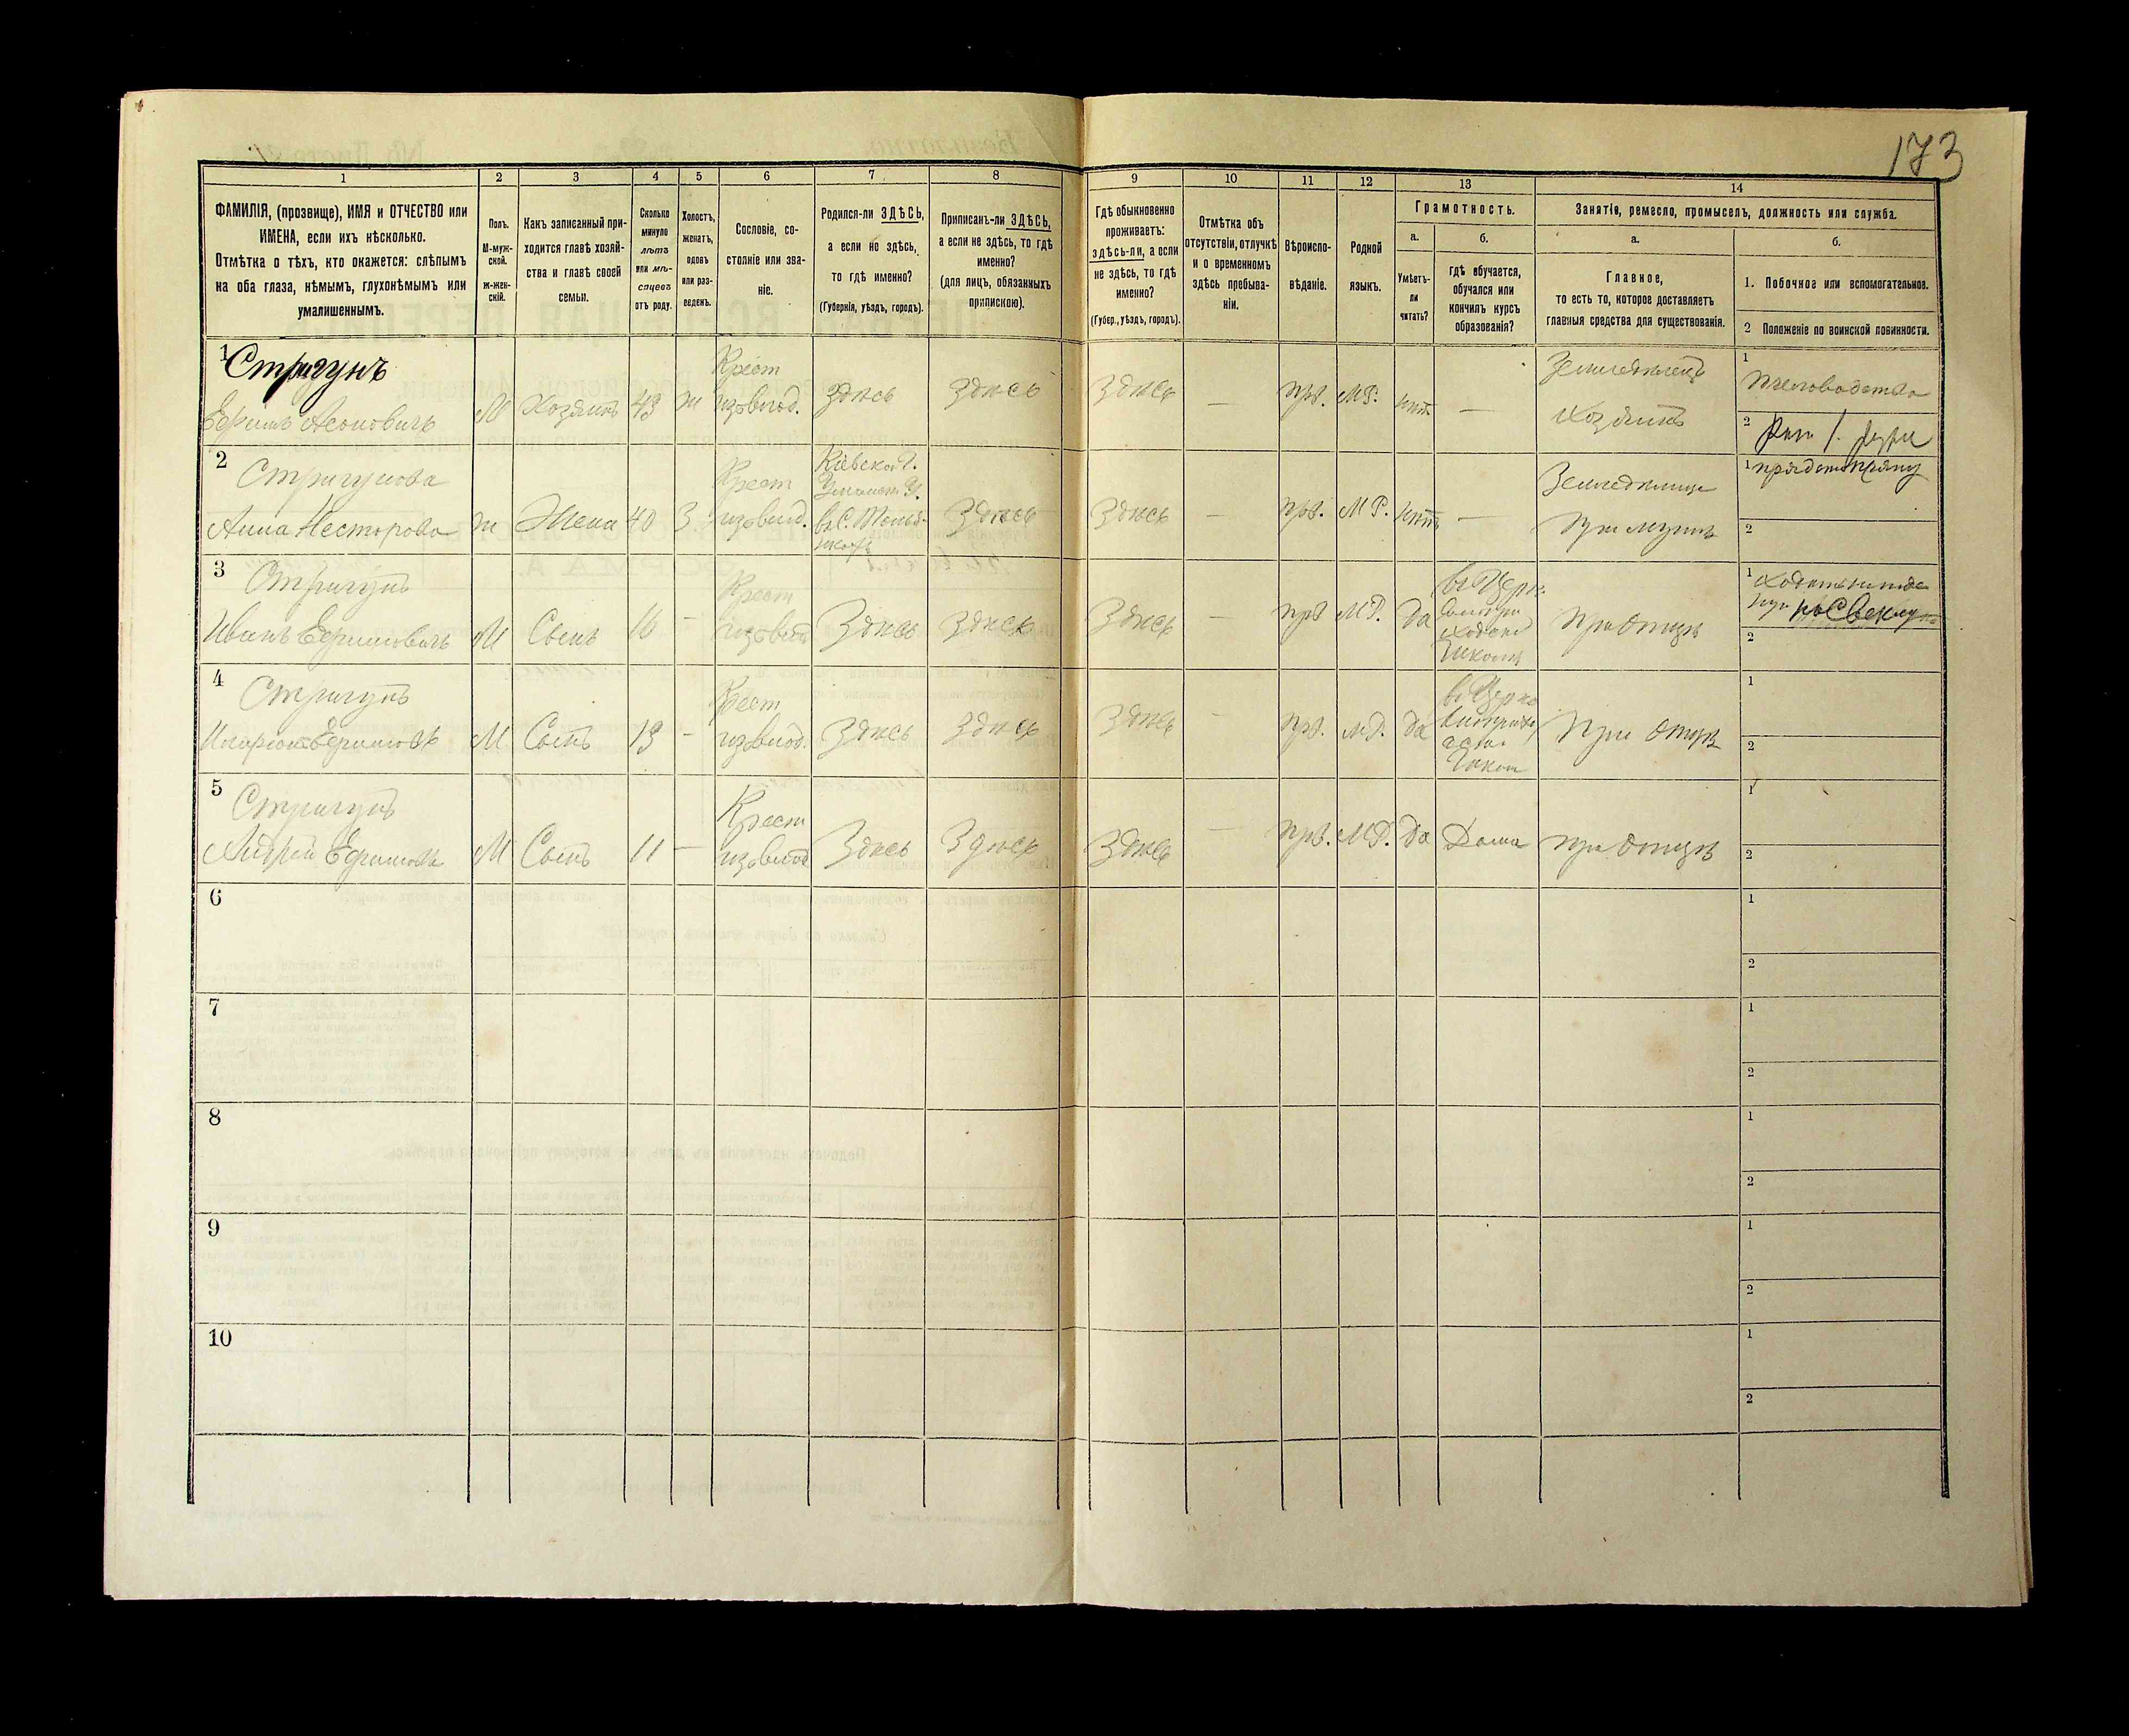 173
1 2 3 4 5 6 7 8 9 10 11 12 13 14
ФАМИЛІЯ, (прозвище), ИМЯ и ОТЧЕСТВО или
ИМЕНА, если ихъ нѣсколько.
Отмѣтка о тѣхъ, кто окажется: слѣпымъ
на оба глаза, нѣмымъ, глухонѣмымъ или
умалишеннымъ.
Полъ.
М-муж-
ской.
ж-жен-
скій.
Какъ записанный при-
ходится главѣ хозяй-
ства и главѣ своей
семьи.
Сколько
минуло
лѣтъ
или мѣ-
сяцевъ
отъ роду.
Холостъ,
женатъ,
вдовъ
или раз-
веденъ.
Сословіе, со-
стояніе или зва-
ніе.
Родился-ли ЗДѢСЬ,
а если не здѣсь,
то гдѣ именно?
(Губернія, уѣздъ, городъ).
Приписанъ-ли ЗДѢСЬ,
а если не здѣсь, то гдѣ
именно?
(для лицъ, обязанныхъ
припискою).
Гдѣ обыкновенно
проживаетъ:
здѣсь-ли, а если
не здѣсь, то гдѣ
именно?
(Губер., уѣздъ, городъ).
Отмѣтка объ
отсутствіи, отлучкѣ
и о временномъ
здѣсь пребыва-
ніи.
Вѣроиспо-
вѣданіе.
Родной
языкъ.
Грамотность.
а.
Умѣетъ-
ли
читать?
б.
гдѣ обучается,
обучался или
кончилъ курсъ
образованія?
Занятіе, ремесло, промыселъ, должность или служба.
а.
Главное,
то есть то, которое доставляетъ
главныя средства для существованія.
б.
1. Побочное или вспомогательное.
2 Положеніе по воинской повинности.
1 Стригунъ
Ефимъ Леоновичъ М Хозяинъ 43 ж Крест
из влад. Здѣсь Здѣсь Здѣсь — прв. М.Р. нѣт. —
Земледѣлецъ
Хозяинъ
1 Пчеловодство
2
2 Стригунова
Анна Несторова ж Жена 40 З. Крест
из влад. Кіевской г.
Здѣсь Здѣсь — прв. М.Р. нѣтъ —
Земледѣлица
при мужѣ
1 прядетъ пряжу
2
3 Стригунъ
Иванъ Ефимовичъ М Сынъ 16 — Крест
из влад Здѣсь Здѣсь Здѣсь — прв М.Р. Да
Школѣ
При Отцѣ
1
2
4 Стригунъ
М Сынъ 13 — Крест
из влад. Здѣсь Здѣсь Здѣсь — прв. М.Р. да
При Отцѣ
1
2
5 Стригунъ
Андрей Ефимовъ М Сынъ 11 — Крест
из влад Здѣсь Здѣсь Здѣсь — прв. М.Р. Да Дома при Отцѣ
1
2
6
1
2
7
1
2
8
1
2
9
1
2
10
1
2